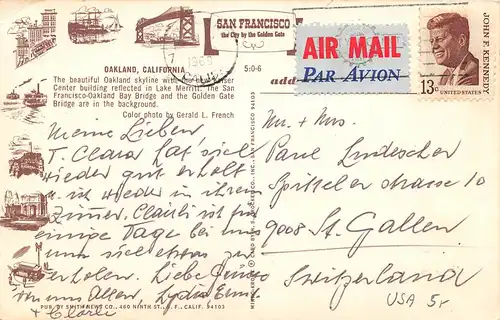 SAN FRANCISCO
the City by the Golden Gate
AIR MAIL
PAR AVION
JOHN F. KENNEDY
13c UNITED STATES
OAKLAND, CALIFORNIA 5:0-6
The beautiful Oakland skyline with the Kaiser
Center building reflected in Lake Merritt. The San
Francisco-Oakland Bay Bridge and the Golden Gate
Bridge are in the background.
Color photo by Gerald L. French
Meine Lieben
T. Clara hat sich
wieder gut erholt
u. ist wieder in ihrem
Zimmer. Claudi ist für
einige Tage bei uns
um sich etwas zu
erholen. Liebe Grüsse
von uns Allen, Lydia Emil
+ Clarli
Mr. + Mrs.
Paul Lindescher
Spitseler strasse 10
9008 St. Gallen
Switzerland
USA 5r
PUB. BY SMITH NEWS CO., 460 NINTH ST., S. F., CALIF. 94103